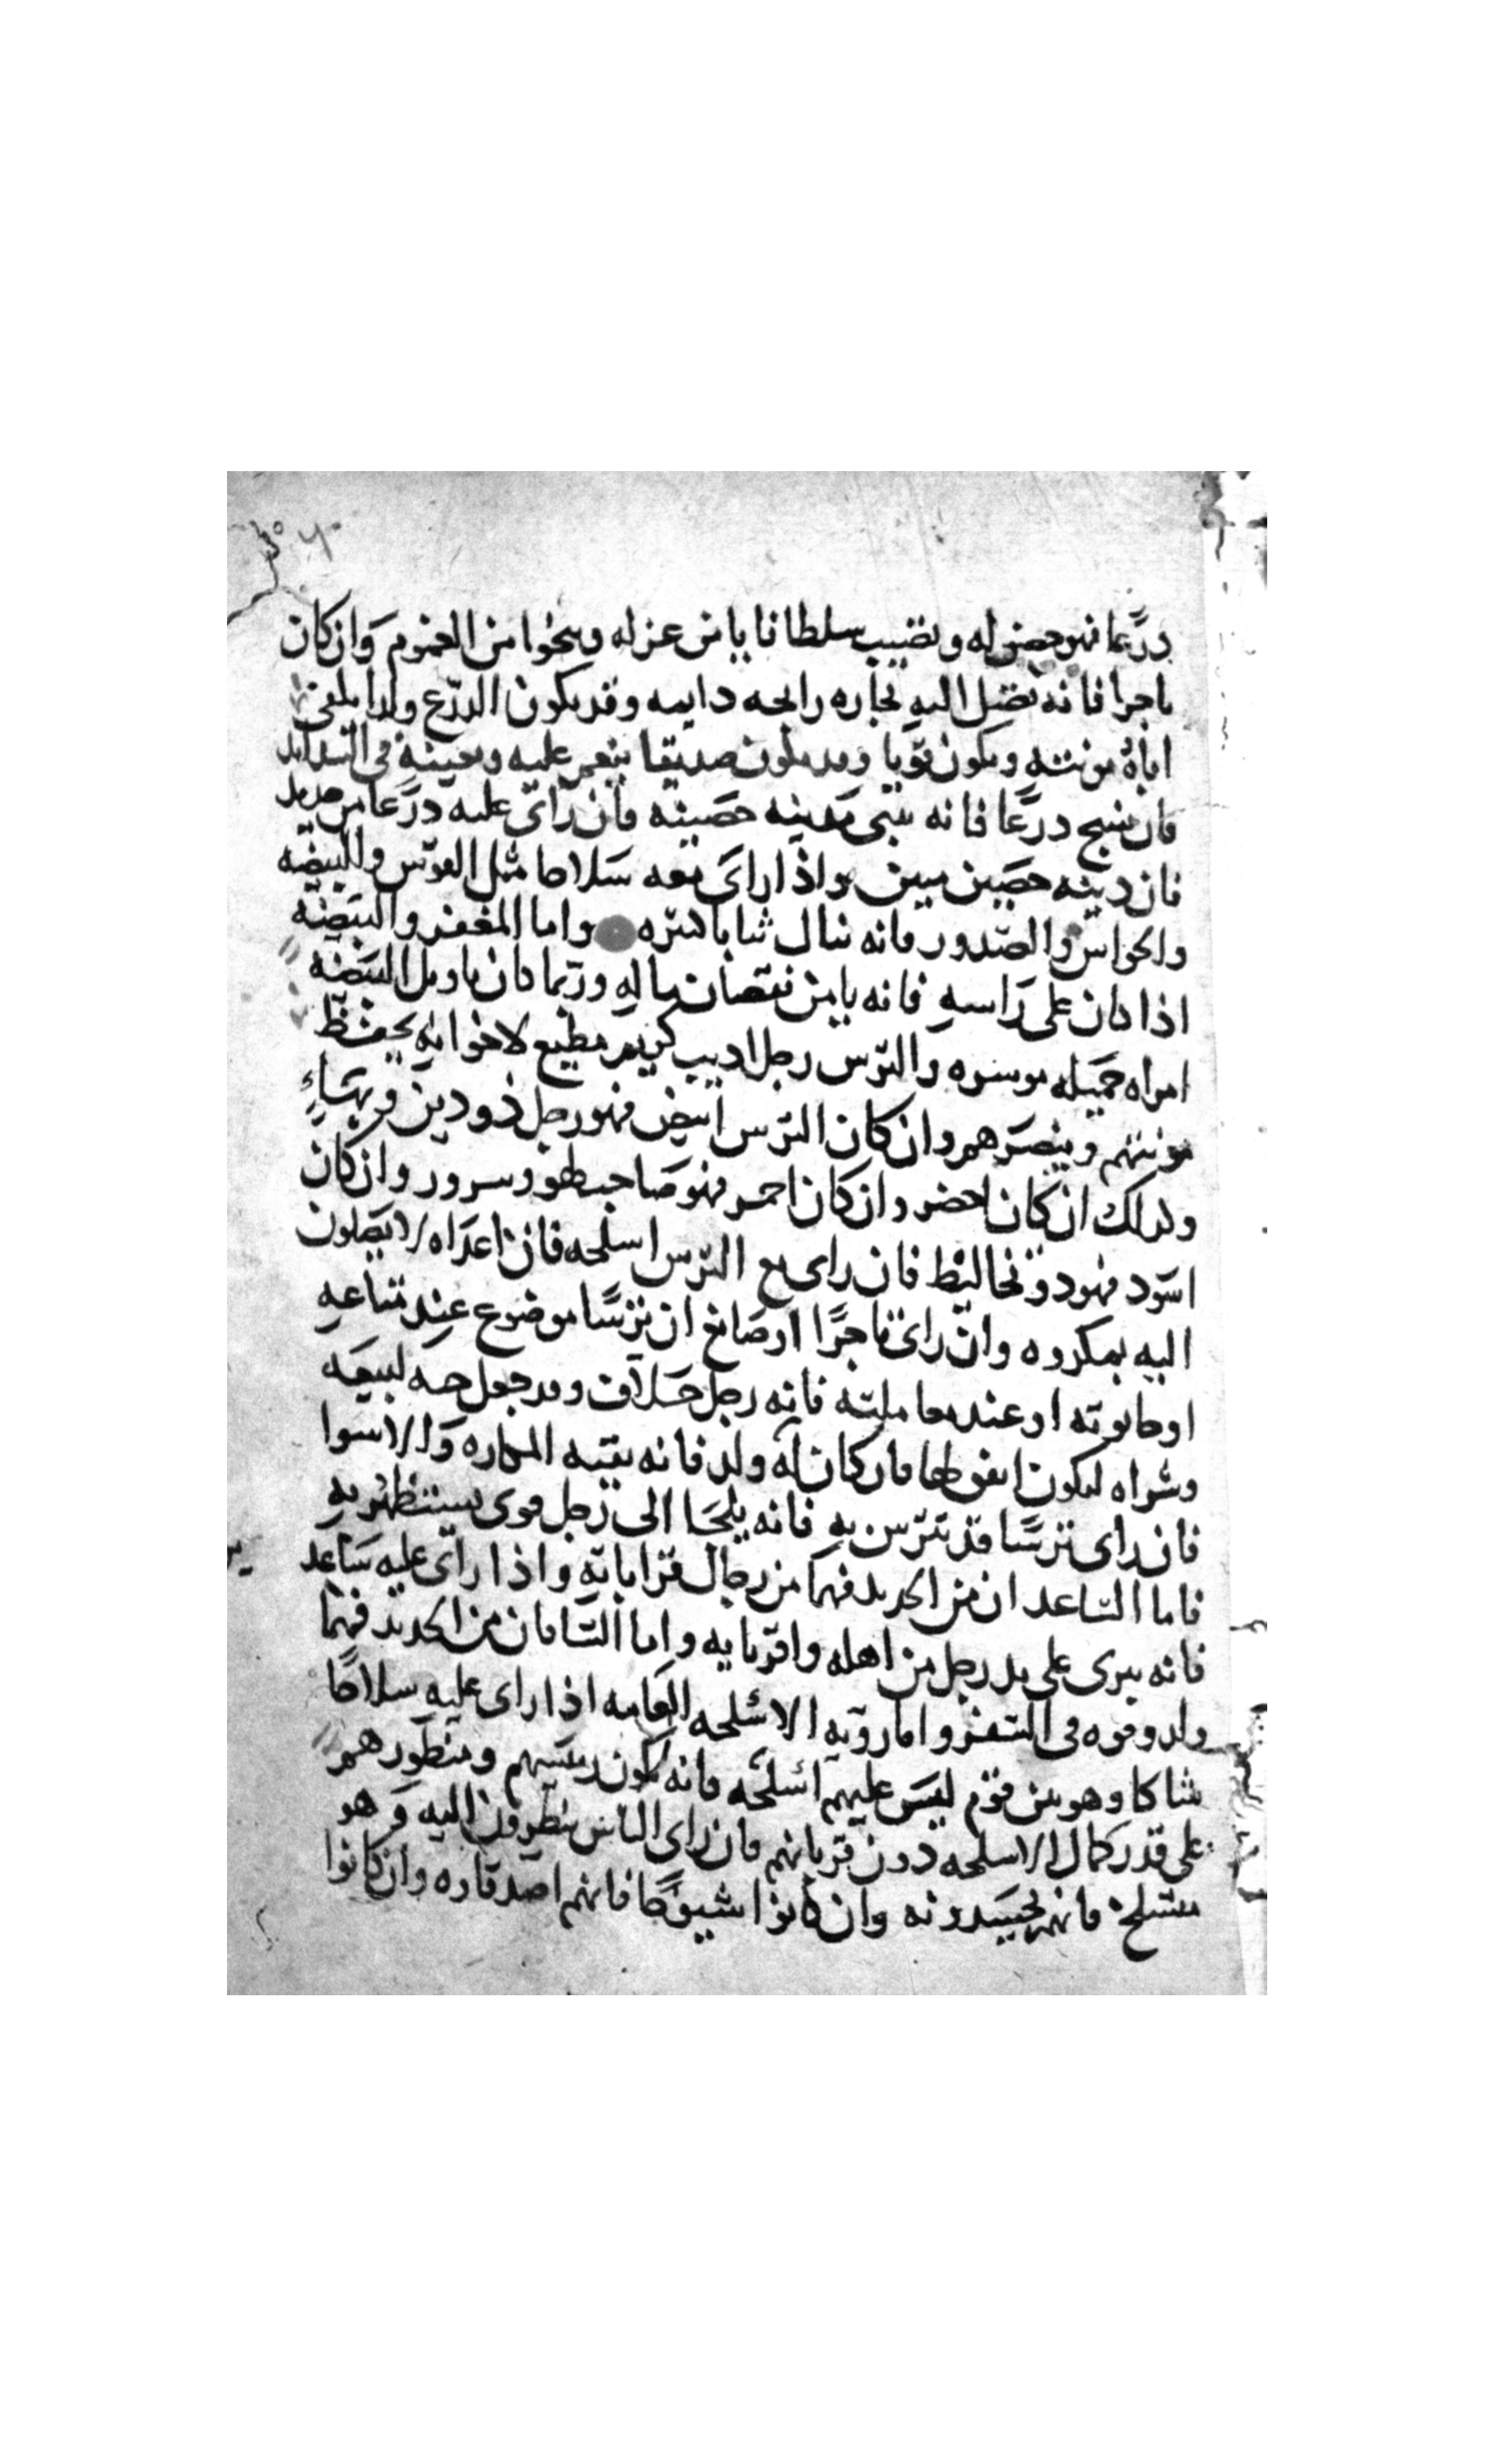 درعا فهو حصن له ويصيب سلطانا يامن عزله وينجوا من الغموم وان كان
تاجرا فانه تصل اليه تجاره رابحه دايمه وقد يكون الدرع ولدا يلقى
اباه مونته ويكون قويا وقد يكون صديقا ينعم عليه ويعينه في الشدايد
فان نسج درعا فانه يبني مدينه حصينه فان راى عليه درعا من حديد
فان دينه حصين مبين واذا راى معه سلاحا مثل القوس والبيضه
والحواس والصدور فانه ينال شبابا واما المغفر والبيضه
اذا كان على راسه فانه يامن نقصان ماله وربما كان تاويل البيضه
امراه جميله موسره والترس رجل اديب كريم مطيع لاخوانه يحفظ
مونتهم وينصرهم وان كان الترس ابيض فهو رجل ذو دين وبهاء
وكذلك ان كان اخضر وان كان احمر فهو صاحب لهو وسرور وان كان
اسود فهو ذو تخاليط فان راى مع الترس اسلحه فان اعداه لا يصلون
اليه بمكروه وان راى تاجرا او صانع ان ترسا موضوع عند متاعه
او حانوته او عند معاملته فانه رجل حلاف وقد جعل لبيعه
وشراه ليكون انفق لها فان كان له ولد فانه يقيه المكاره والاسوا
فان راى ترسا قد تترس به فانه يلجا الى رجل قوى يستظهر به
فاما الساعدان من الحديد فهما من رجال قراباته واذا راى عليه ساعد
فانه يرى على يد رجل من اهله واقربايه واما الساقان من الحديد فهما
ولد وقوه في السفر واما رويه الاسلحه العامه اذا راى عليه سلاحا
شاكا وهو بين قوم ليس عليهم اسلحه فانه يكون رييسهم ومنظورهم
على قدر كمال الاسلحه دون قربانهم فان راى الناس ينظرون اليه وهو
متسلح فانهم يحسدونه وان كانوا شيوخا فانهم اصدقاوه وان كانوا